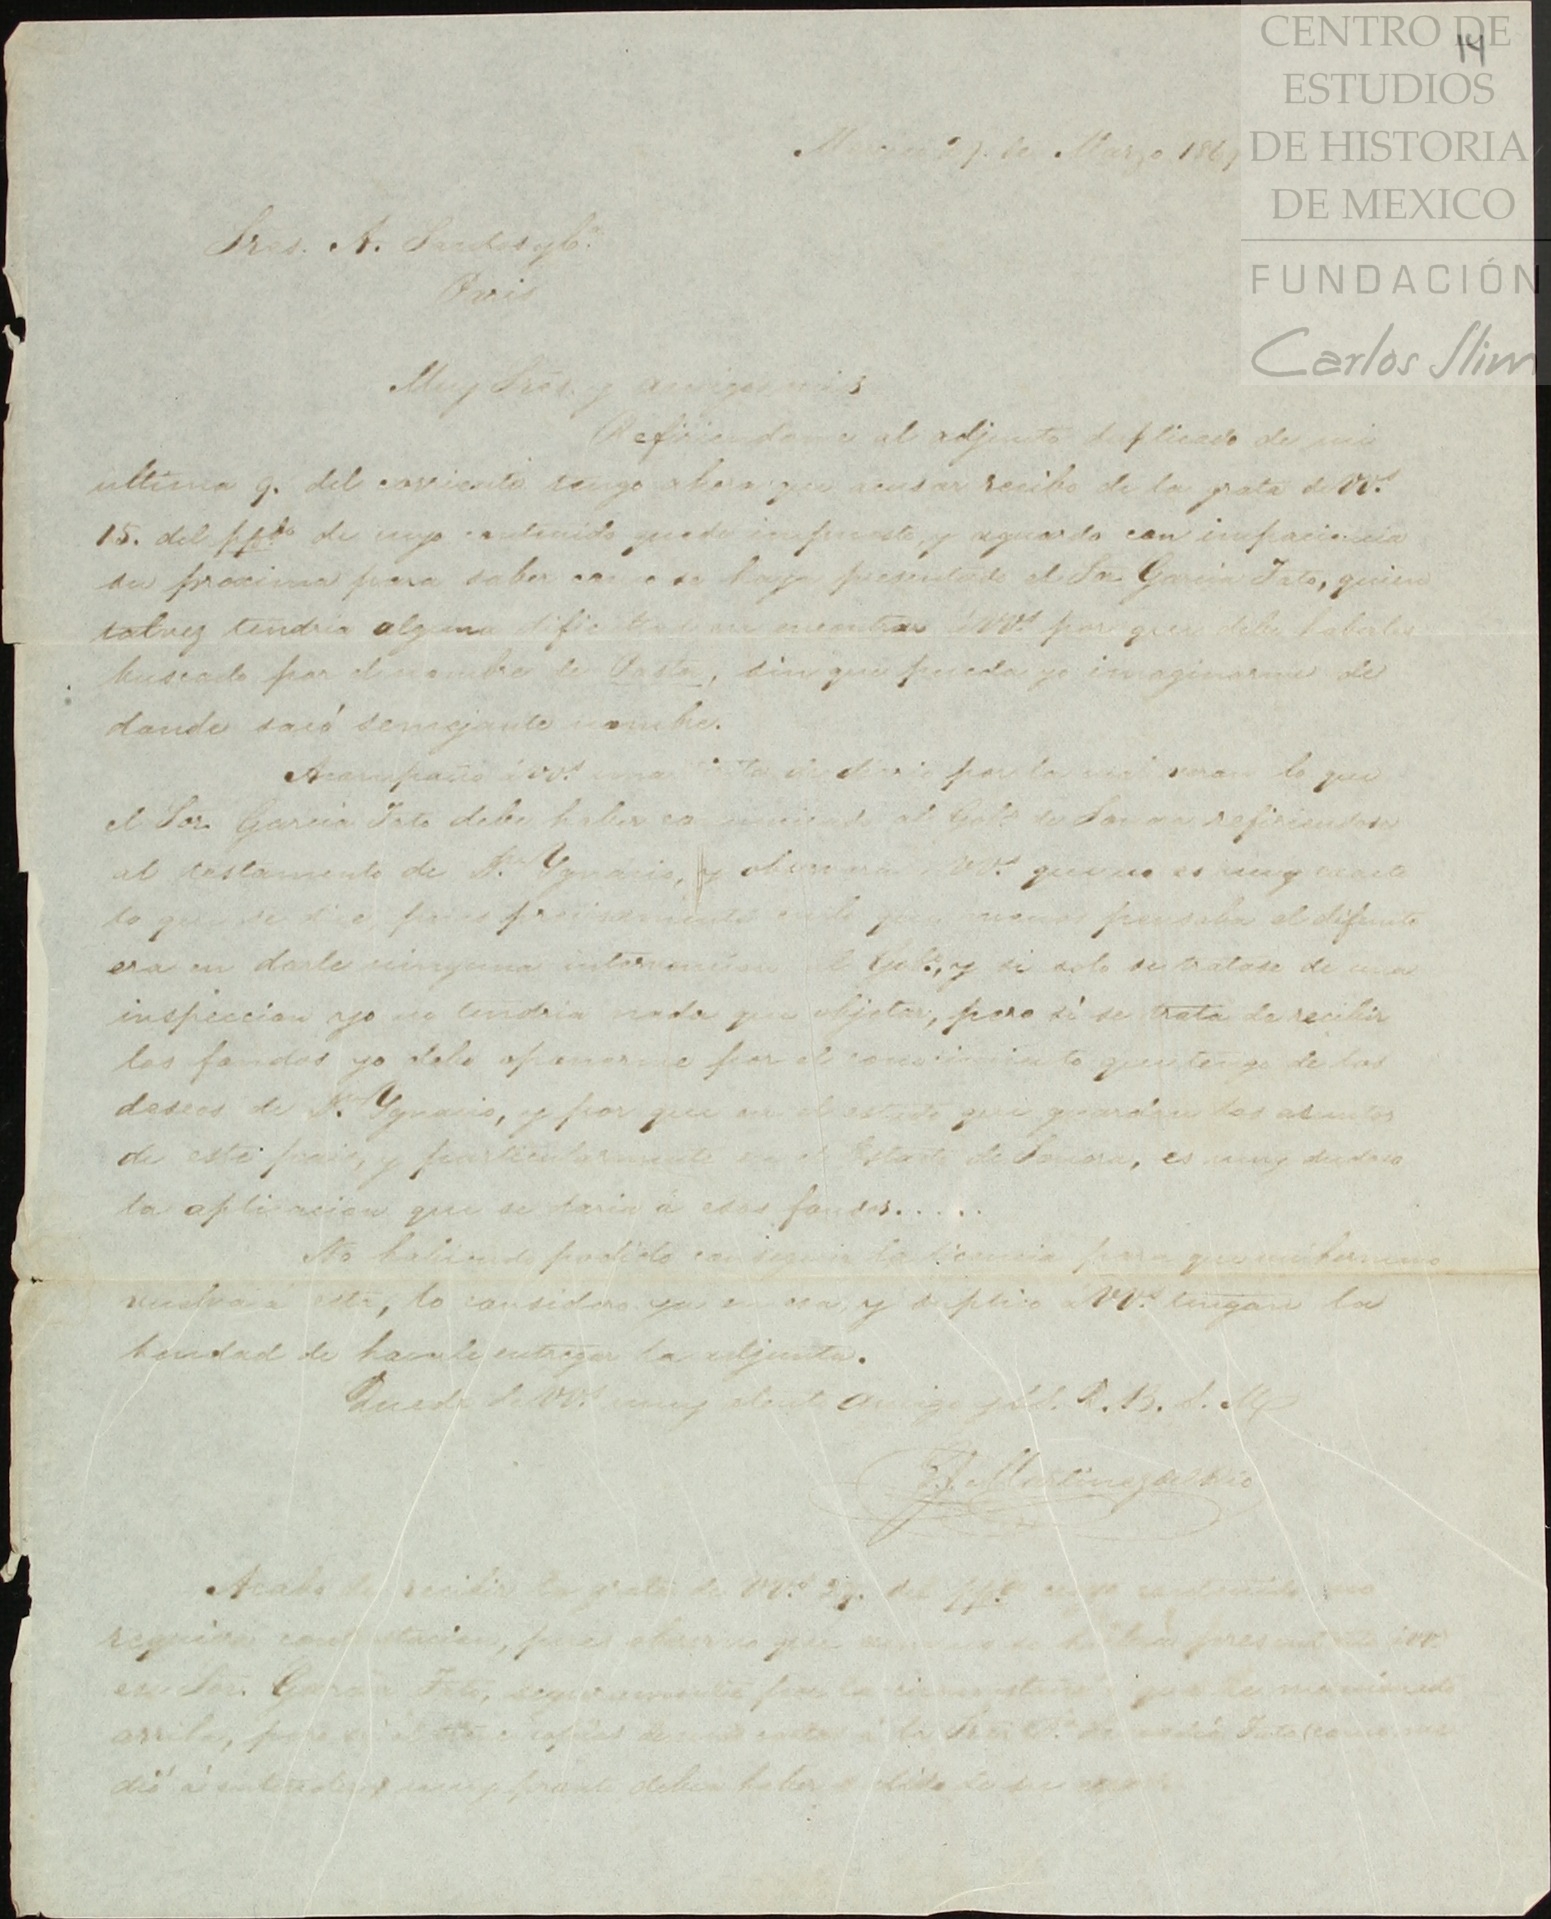 CENTRO DE
ESTUDIOS
DE HISTORIA
DE MEXICO
FUNDACIÓN
Carlos Slim
14
27. de Marzo 186
Sres. A. y Ca.
Paris
Muy Sres. y amigos mios
Refiriendome al adjunto duplicado de mi
ultima 9. del corriente tengo ahora que acusar recibo de la grata de VVs.
15. del ppdo. de cuyo contenido quedo impuesto, y aguardo con impaciencia
su proxima para saber como se haya presentado el Sor. Garcia Tato, quien
talvez tendria alguna dificultad en encontrar á VVs. por que debe haberlos
buscado por el nombre de , sin que pueda yo imaginarme de
donde sacó semejante nombre.
Acompaño á VVs. una de diario por la cual veran lo que
el Sor. Garcia Tato debe haber comunicado al Gobo. de Sonora refiriendose
al testamento de Dn. Ygnacio, y observaran VVs. que no es muy exacto
lo que se dice, pues precisamente en lo que menos pensaba el difunto
era en darle ninguna intervencion al Gobo., y si solo se tratase de una
inspeccion yo no tendria nada que objetar, pero si se trata de recibir
los fondos yo debo oponerme por el conocimiento que tengo de los
deseos de Dn. Ygnacio, y por que en el estado que guardan los asuntos
de este pais, y particularmente en el Estado de Sonora, es muy dudosa
la aplicacion que se daria á esos fondos.....
No habiendo podido conseguir la licencia para que mi hermano
vuelva á esta, lo considero ya en esa, y suplico á VVs. tengan la
bondad de hacerle entregar la adjunta.
Quedo de VVs. muy atento amigo y S.S. Q. B. S. M.
Martinez del Rio
Acabo de recibir la grata de VVs. 29. del ppdo. cuyo contenido no
requiere contestacion, pues observo que aun no se habia presentado á VVs.
ese Sor. Garcia Tato, seguramente por la circunstancia que he mencionado
arriba, pero si el copias de mis cartas á la Tato (como me
dió á entender) muy pronto debia haber salido de su